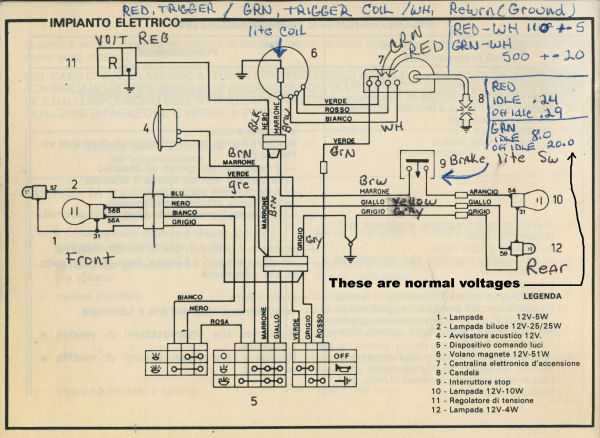 RED, TRIGGER / GRN, TRIGGER COIL / WH, Return (Ground)
IMPIANTO ELETTRICO
VOLT REG
lite coil
GRN
RED
RED-WH 110 +- 5
GRN-WH
500 +- 20
RED
IDLE .24
Off IDLE .29
GRN
IDLE 8.0
Off IDLE 20.0
11
R
6
7
8
4
VERDE
ROSSO
BIANCO
WH
Blk
NERO
MARRONE
Brw
VERDE
GRN
Brn
MARRONE
VERDE
gre
MARRONE
Brn
9 Brake lite Sw
Brw
MARRONE
GIALLO
Yellow
GRIGIO
Gray
ARANCIO
GIALLO
GRIGIO
54
31
10
58
12
Rear
57
2
56B
56A
31
1
Front
BLU
NERO
BIANCO
GRIGIO
GRIGIO
Gry
BIANCO
NERO
ROSA
MARRONE
GIALLO
VERDE
GRIGIO
ROSSO
OFF
5
These are normal voltages
LEGENDA
1 - Lampada 12V-5W
2 - Lampada biluce 12V-25/25W
4 - Avvisatore acustico 12V.
5 - Dispositivo comando luci
6 - Volano magnete 12V-51W
7 - Centralina elettronica d'accensione
8 - Candela
9 - Interruttore stop
10 - Lampada 12V-10W
11 - Regolatore di tensione
12 - Lampada 12V-4W